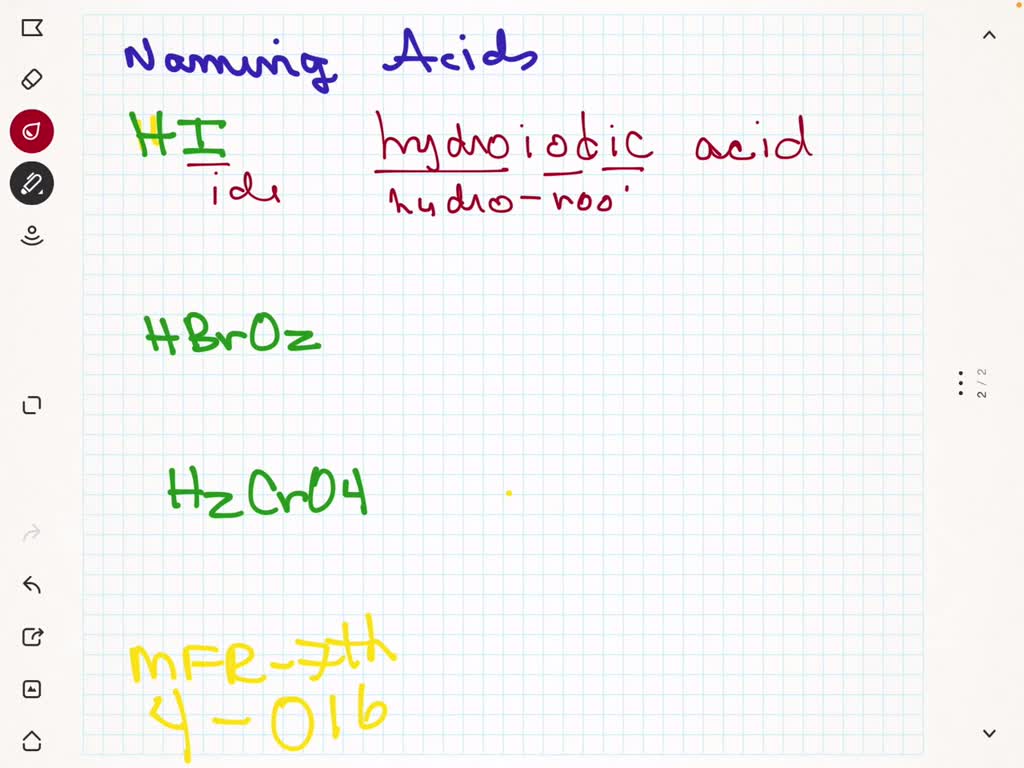 Naming Acids
HI hydroiodic acid
ide hydro-roo
HBrO2
H2CrO4
MFR-7th
4-016
2/2